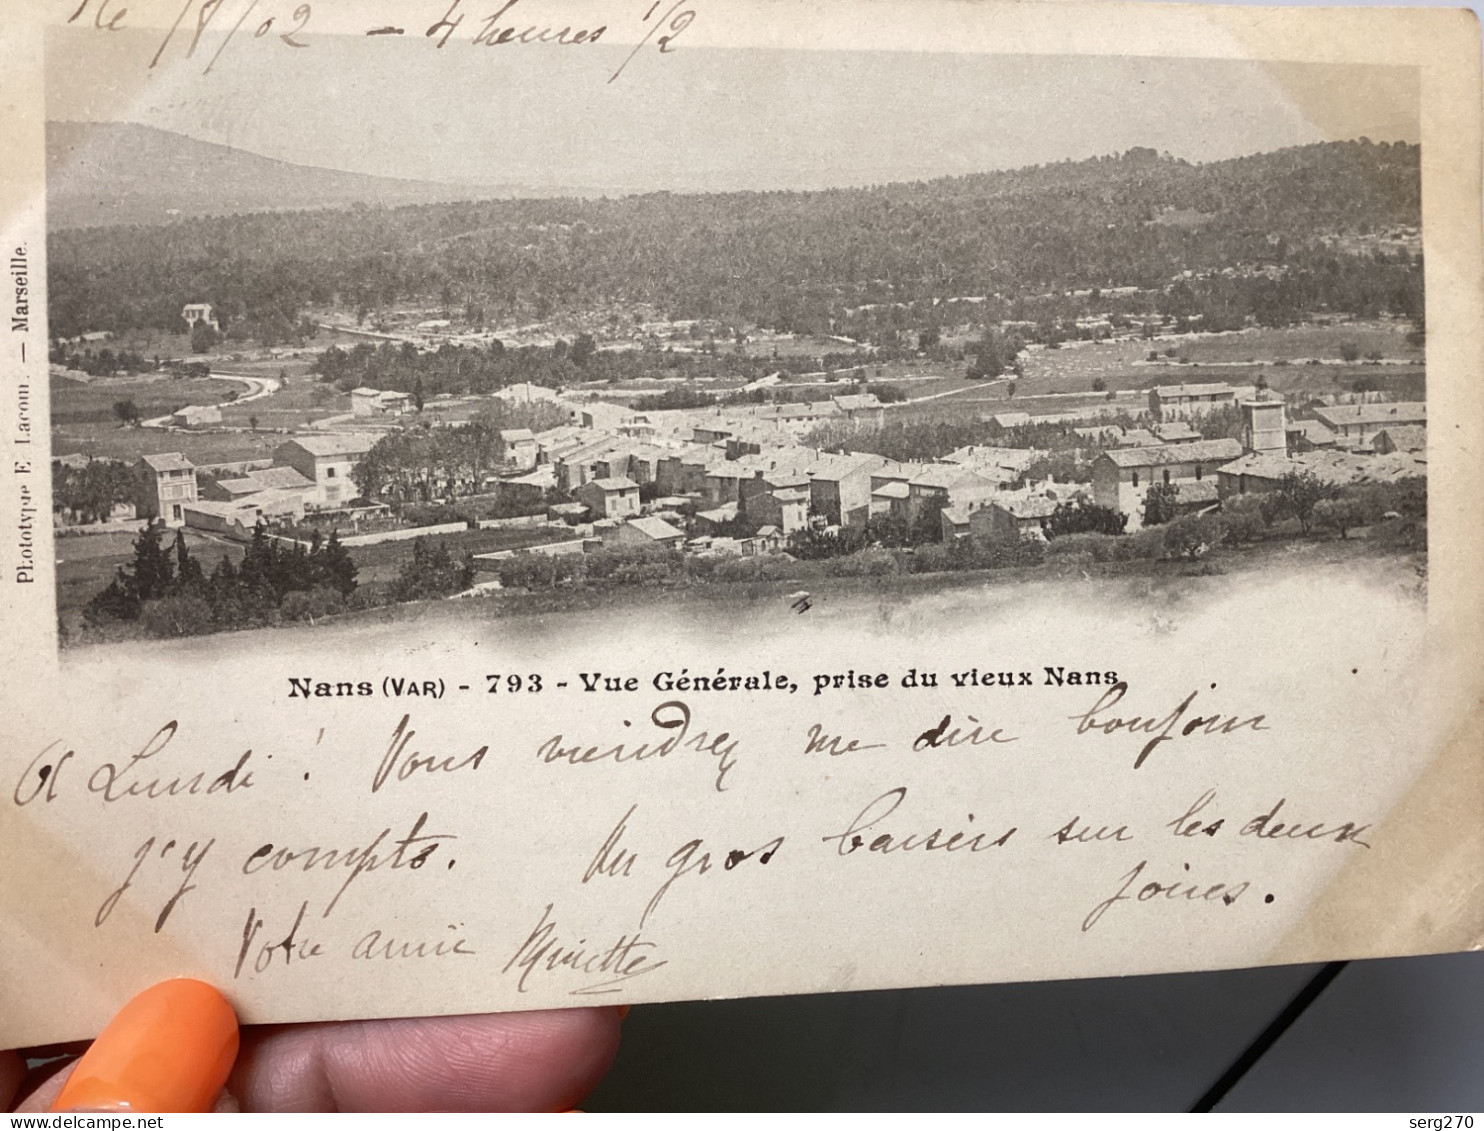 /8/02 - 4 heures 1/2
Phototypie E. Lacour. — Marseille.
Nans (VAR) - 793 - Vue Générale, prise du vieux Nans
A Lundi ! Vous viendrez me dire bonjour
j'y compte. Un gros baisers sur les deux
joues.
Votre amie Minette
serg270